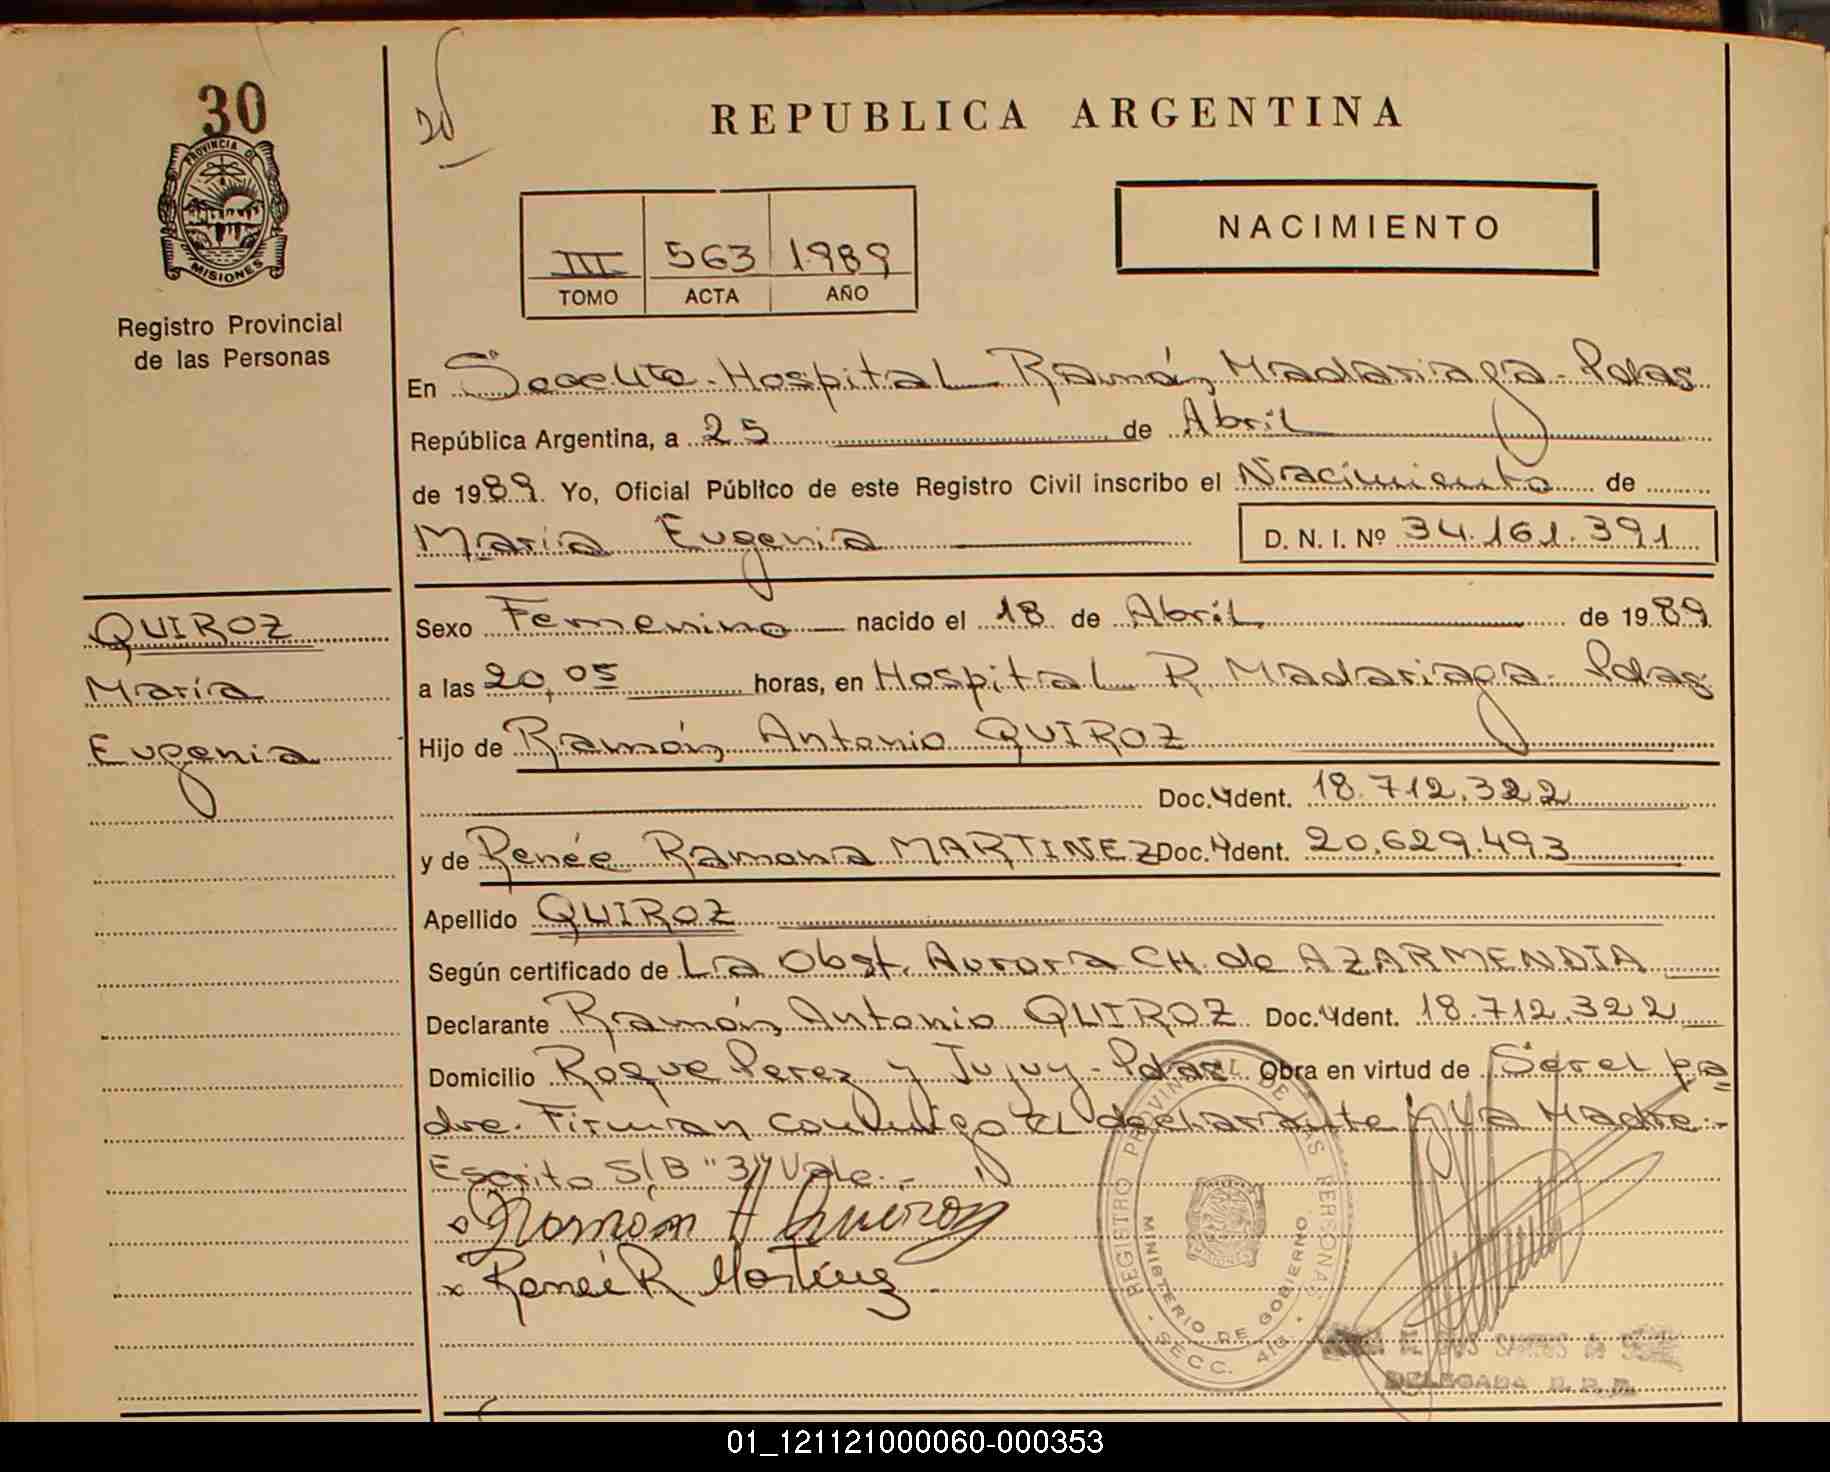 30
20
REPUBLICA ARGENTINA
PROVINCIA DE MISIONES
NACIMIENTO
III 563 1989
TOMO ACTA AÑO
Registro Provincial
de las Personas
En Hospital Ramón Madariaga - Pdas
República Argentina, a 25 de Abril
de 1989. Yo, Oficial Público de este Registro Civil inscribo el Nacimiento de
María Eugenia D. N. I. Nº 34.161.391
QUIROZ
María
Eugenia
Sexo Femenino nacido el 18 de Abril de 1989
a las 20,05 horas, en Hospital R. Madariaga - Pdas
Hijo de Ramón Antonio QUIROZ
Doc. Ident. 18.712.322
y de Renée Ramona MARTINEZ Doc. Ident. 20.629.493
Apellido QUIROZ
Según certificado de La Obst. Aurora CH. de AZARMENDIA
Declarante Ramón Antonio QUIROZ Doc. Ident. 18.712.322
Domicilio Roque Perez y Jujuy - Pdas Obra en virtud de Ser el pa=
dre. Firman conmigo el declarante y la Madre.-
Escrito S/B "3" Vale.-
Ramón A Quiroz
x Reneé R Martinez
REGISTRO PROVINCIAL DE LAS PERSONAS
MINISTERIO DE GOBIERNO
SECC. 4ta
DELEGADA R. P. P.
01_121121000060-000353